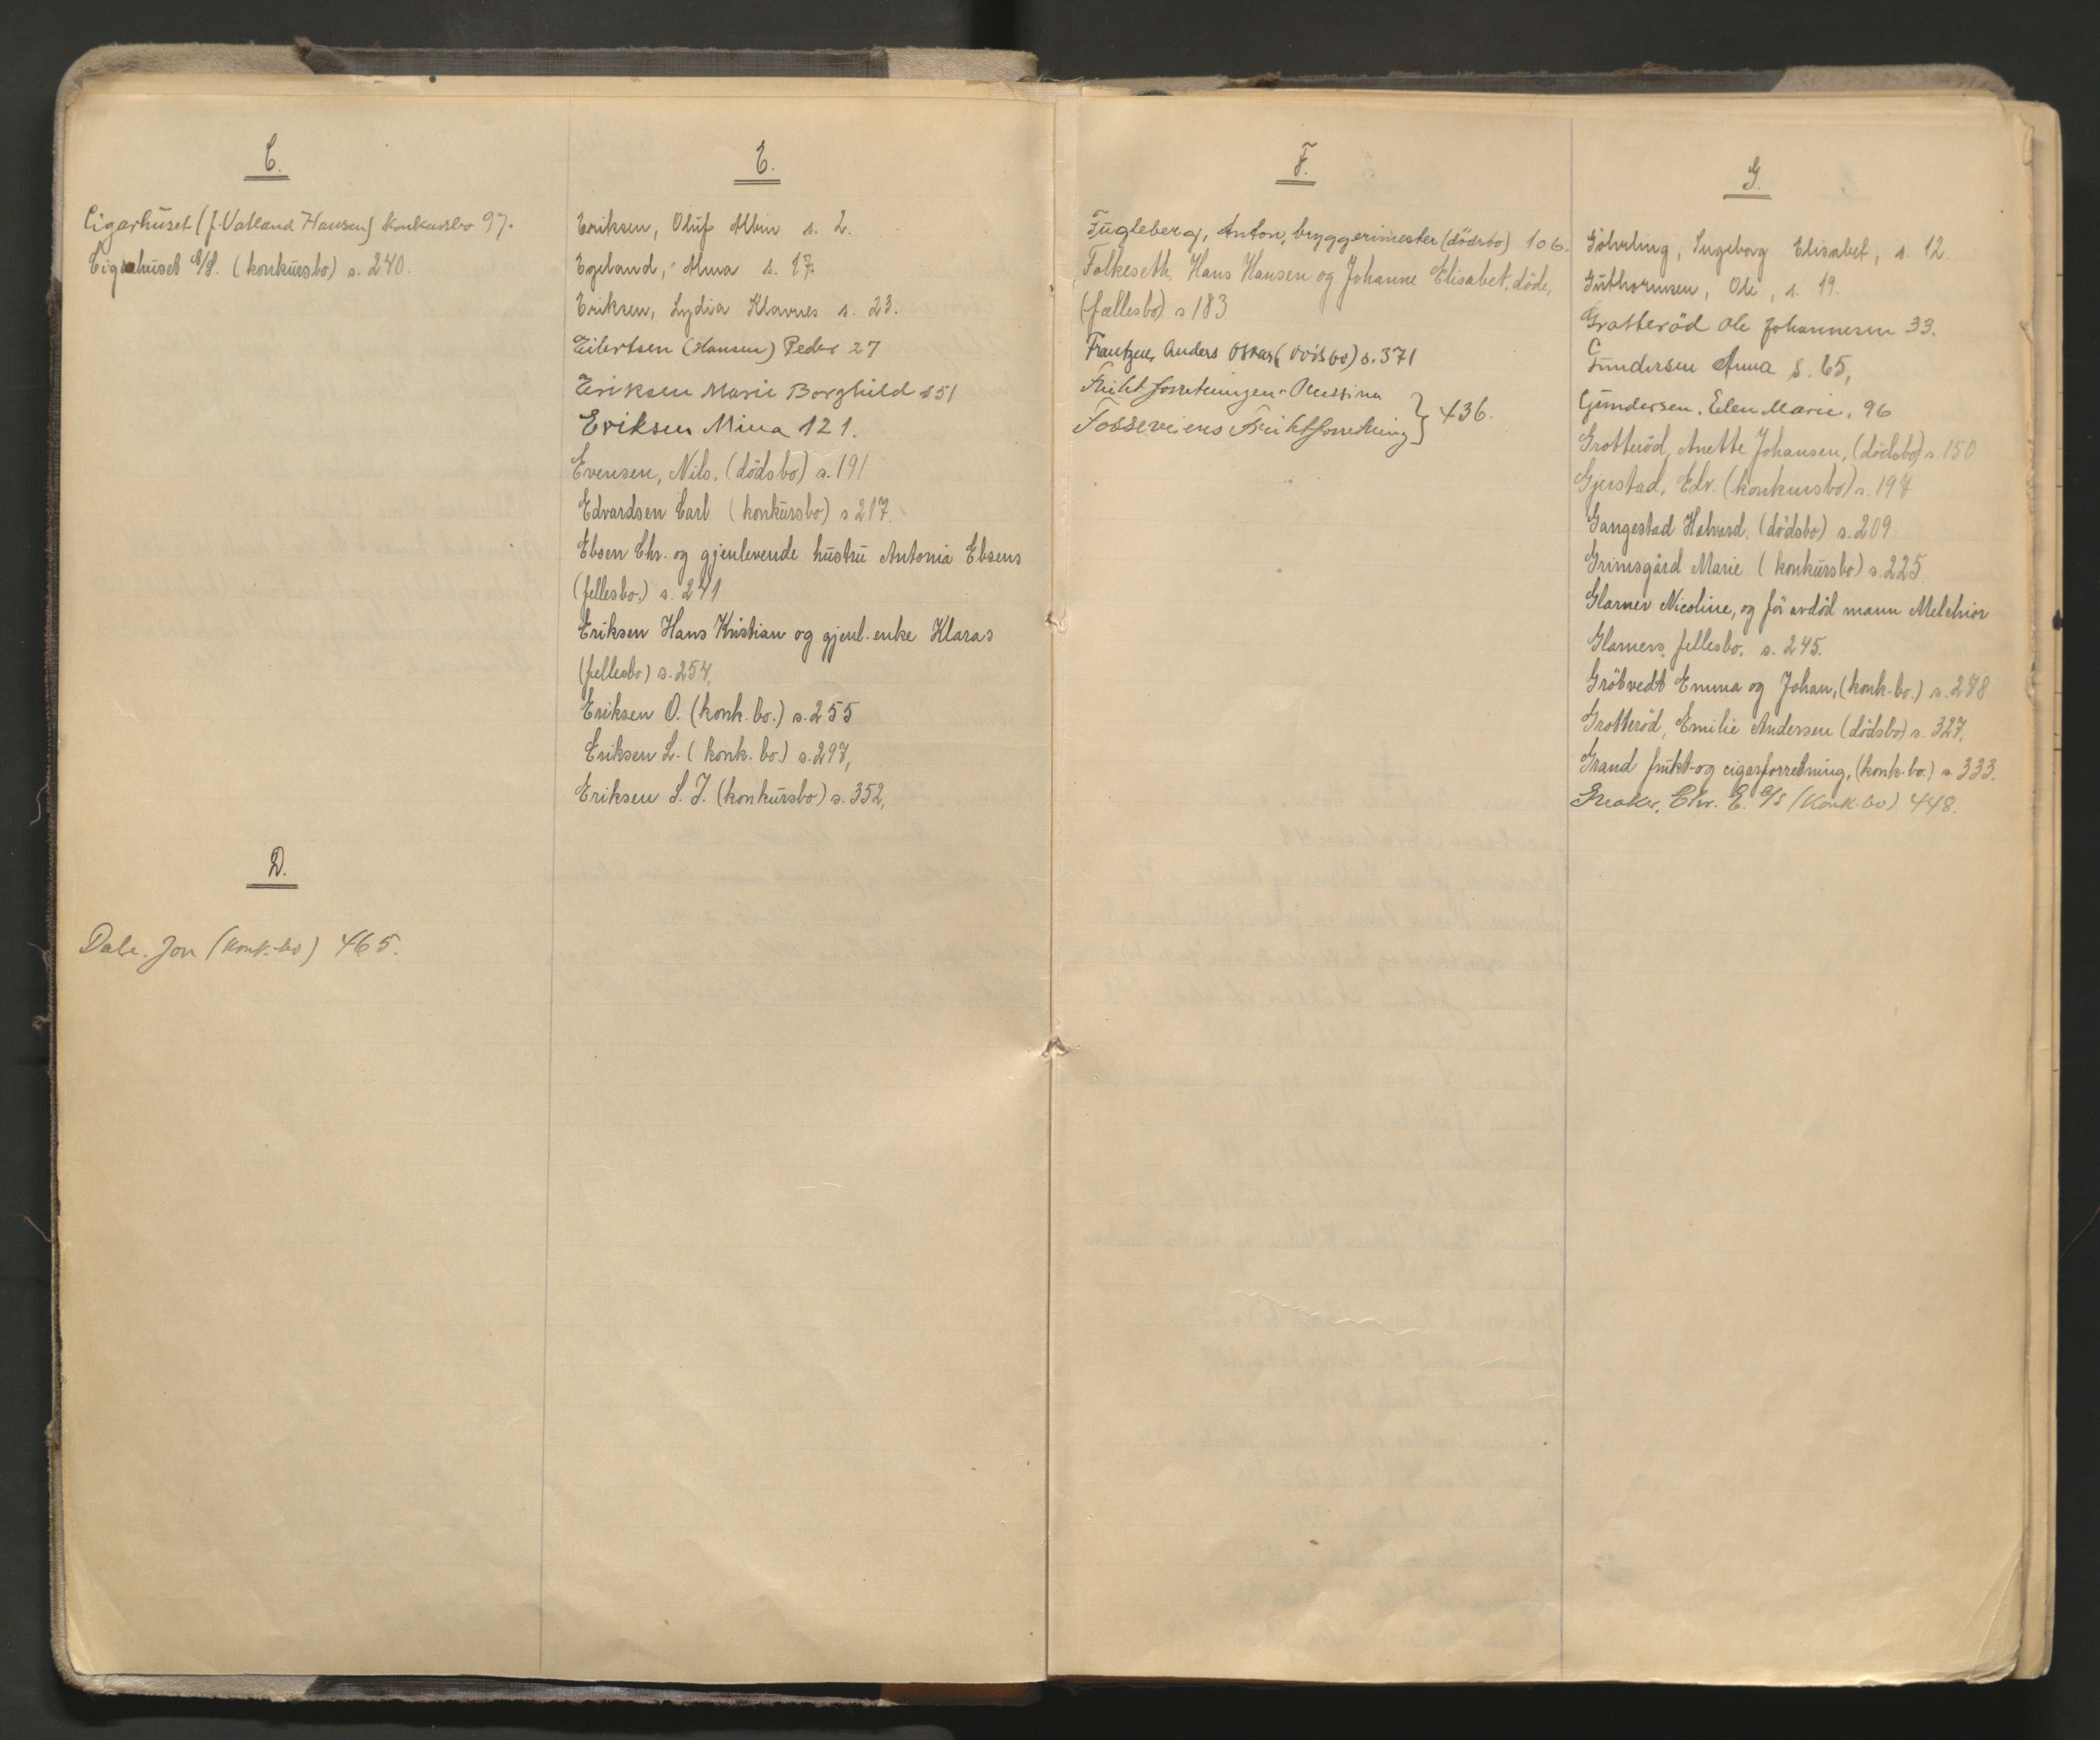 C.
Cigarhuset (J. Vatland Hansen) konkursbo 97.
Cigarhuset A/S. (konkursbo) s. 240.
D.
Dale. Jon (konk.-bo) 465.
E.
Eriksen, Oluf Albin s. 2.
Egeland, Alma s. 17.
Eriksen, Lydia Klavnes s. 23.
Eilertsen (Hansen) Peder 27
Eriksen Marie Borghild s 51
Eriksen Mina 121.
Evensen, Nils. (dödsbo) s. 191
Edvardsen Carl (konkursbo) s 217.
Ebsen Chr. og gjenlevende hustru Antonia Ebsens
(fellesbo.) s. 241
Eriksen Hans Kristian og gjenl. enke Klaras
(fellesbo) s. 254.
Eriksen O. (konk. bo.) s. 255
Eriksen L. (konk. bo.) s. 297,
Eriksen S. J. (konkursbo) s. 352,
F.
Fugleberg, Anton, bryggerimester (dödsbo) 106.
Folkeseth, Hans Hansen og Johanne Elisabet, döde,
(fællesbo) s 183
Frantzen, Anders Oskar (dödsbo) s. 371
Fruktforretningen Messina
Fosseveiens Fruktforretning } 436.
G.
Göhrling, Ingeborg Elisabet, s. 12
Guthormsen, Ole, s. 19.
Gratteröd Ole Johannesen 33.
Gundersen Anna s. 65,
Gundersen. Elen Marie. 96
Grotteröd, Anette Johansen, (dödsbo) s. 150
Gjerstad, Edv. (konkursbo) s. 197
Gangestad Halvard. (dödsbo) s. 209
Grimsgård Marie (konkursbo) s. 225.
Glarner Nicoline, og för avdöd mann Melchior
Glarners fellesbo. s. 245.
Gröbvedt Emma og Johan, (konk.-bo.) s. 278
Grotteröd, Emilie Andersen (dödsbo) s. 327.
Grand frukt-og cigarforretning, (konk.-bo.) s. 333.
Greaker, Chr. E. A/S (Konk.-bo) 448.